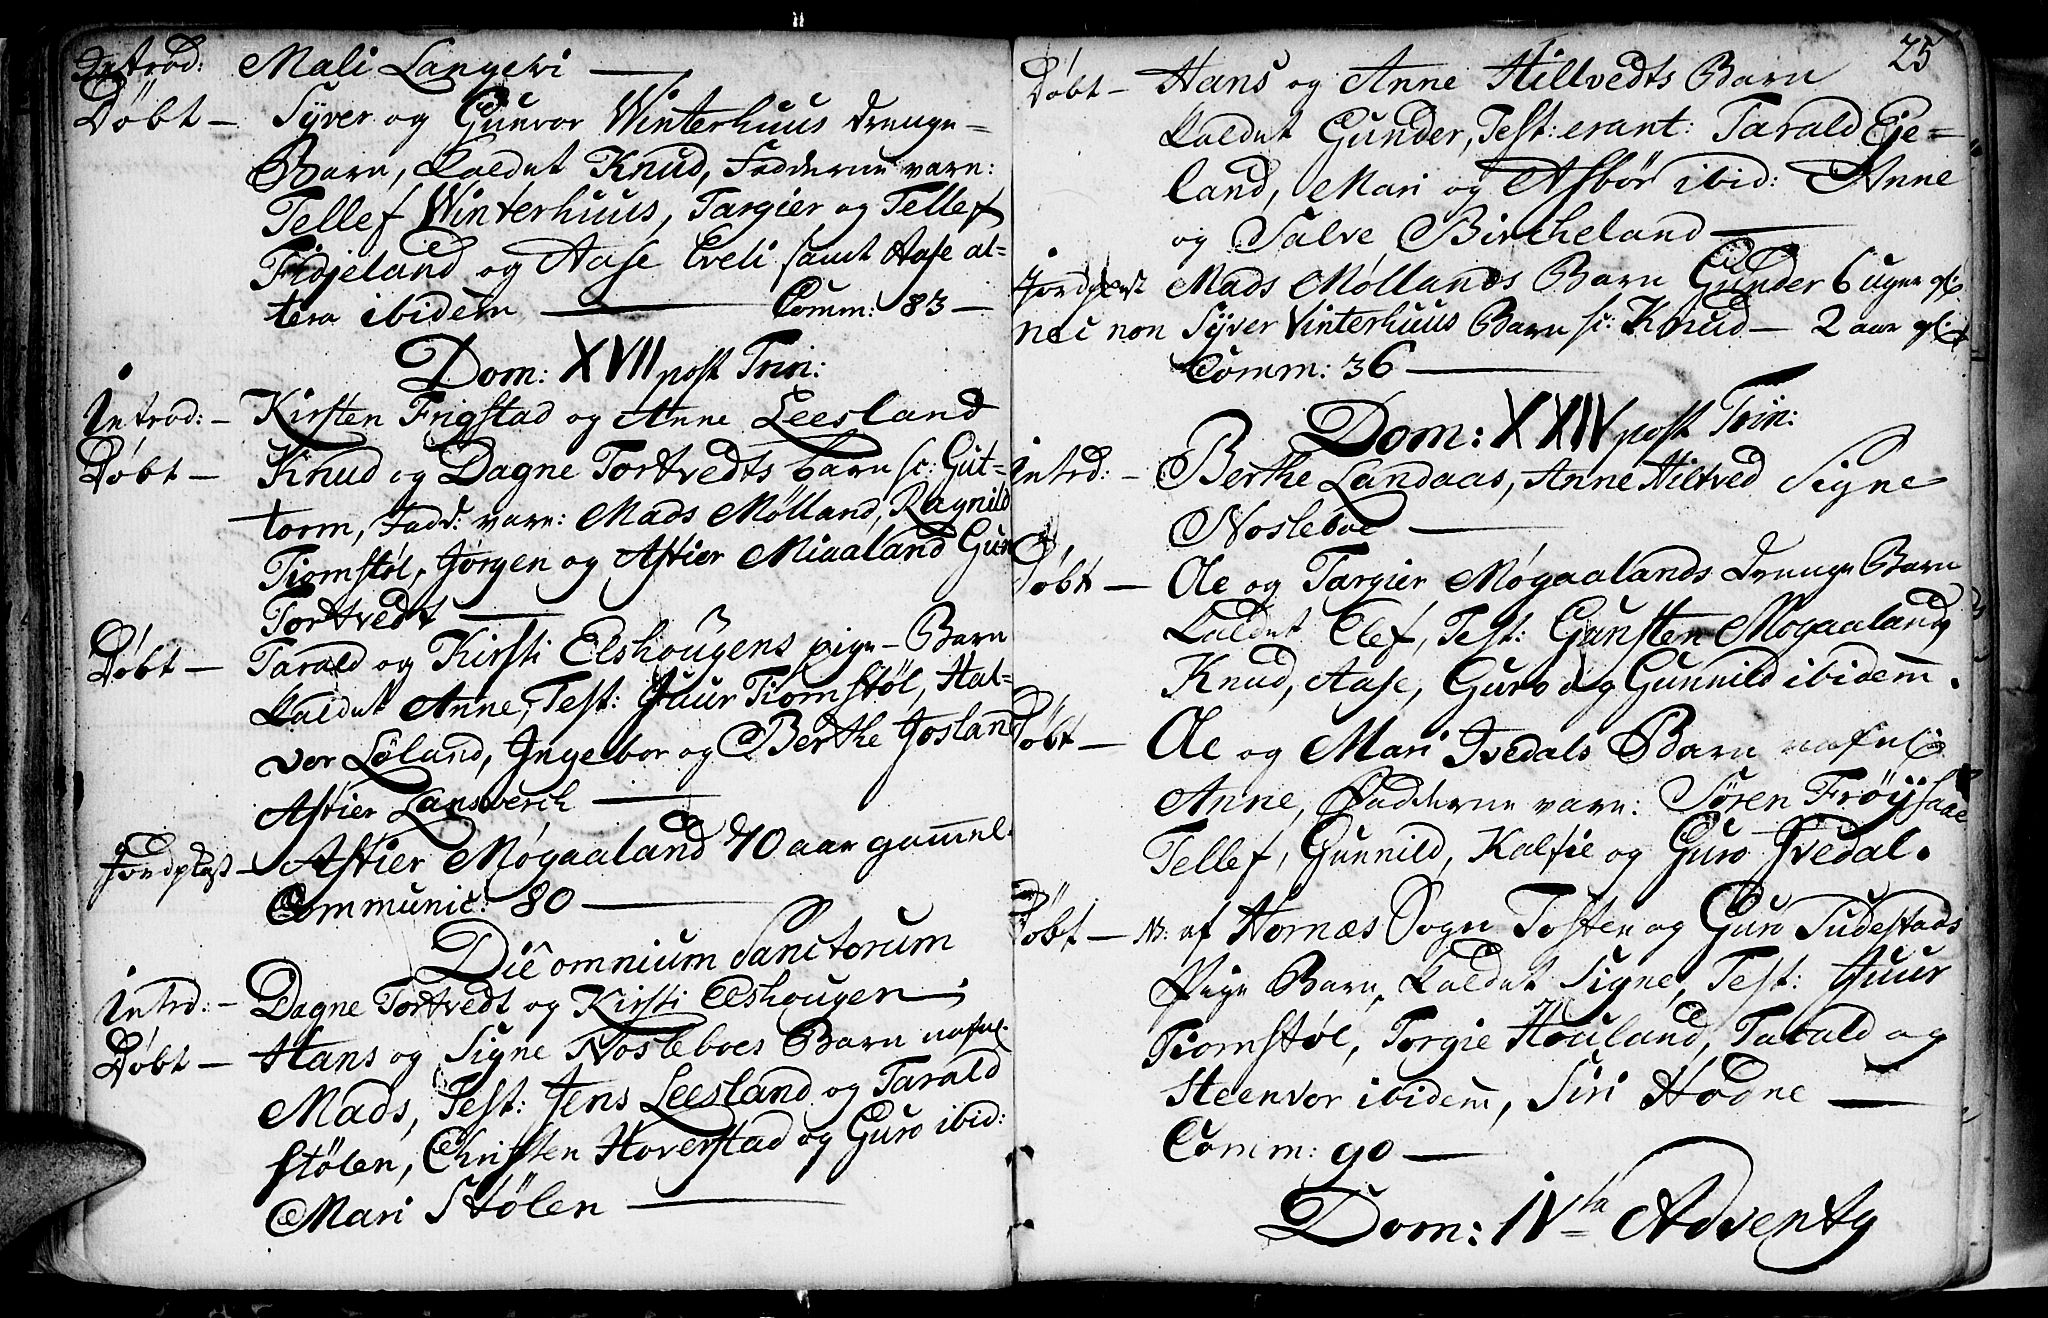 Introd: Mali Langevi —
Døbt — Syver og Gunvor Winterhuus drenge=
Barn, kaldet Knud, Fadderne vare:
Tellef Winterhuus, Targier og Tellef
Fidjeland og Aase Eveli samt Aase al=
tera ibidem — Comm: 83 —
Dom: XVII post Trin:
Introd: — Kirsten Frigstad og Anne Leesland
Døbt — Knud og Dagne Tortvedts barn sc: Gut=
torm, Fadd: vare: Mads Mølland, Ragnild
Tiomstøl, Jørgen og Astier Miaaland Gun
Tortvedt —
Døbt — Tarald og Kirsti Elshougens pige-Barn
kaldet Anne, Test: Gjuur Tiomstøl, Hal=
vor Løland, Ingebor og Berthe Josland
Astier Lansverch —
Jordpaast — Astier Møgaaland 70 aar gammel.
Communic: 80 —
Die omnium Sanctorum
Intrd: — Dagne Tortvedt og Kirsti Elshougen —
Døbt — Hans og Signe Nosleboes Barn nafnl.
Mads, Test: Jens Leesland og Tarald
Stølen, Christen Hoverstad og Guro ibid:
Mari Stølen —
25
Døbt — Hans og Anne Hillvedts Barn
kaldet Gunder, Test: erant: Tarald Eje=
land, Mari og Asbør ibid: Anne
og Salve Bircheland —
Jordpaast Mads Møllands Barn Gunder 6 uger gl.
nec non Syver Vinterhuus Barn sc: Knud — 2 aar gl.
Comm: 36 —
Dom: XXIV post Trin:
Intrd: — Berthe Landaas, Anne Hiltved Signe
Nosleboe —
Døbt — Ole og Targier Møgaalands drenge Barn
kaldet Elef, Test: Gunsten Møgaaland,
Knud, Aase, Guro og Gunnild ibidem.
Døbt — Ole og Mari Ivedals Barn nafnl:
Anne, Fadderne vare: Søren Frøysaae
Tellef, Gunnild, Kalfie og Guro Ivedal.
Døbt — N: af Hornæs Sogn Tosten og Guro Tudestads
Pige Barn, kaldet Signe, Test: Gjuur
Tiomstøl, Torgie Houland, Tarald og
Steenvor ibidem, Siri Hodne —
Comm: 90 —
Dom: IVta Adventq